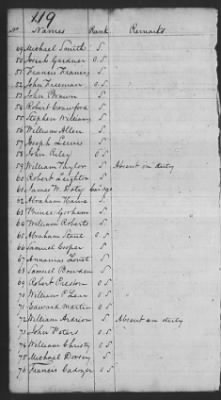 419
No. Names Rank Remarks
49 Michael Smith S
50 Josiah Gardner O.S
51 Francis Francis S
52 John Freeman O.S
53 John Brown S
54 Robert Crawford S
55 Stephen Williams S
56 William Allen S
57 Joseph Lewis S
58 John Riley O.S
59 William Taylor S Absent on duty
60 Robert Leighton S
61 James W. Doty
62 Abraham S
63 Prince Gorham S
64 William Roberts S
65 Abraham O.S
66 Samuel Cooper S
67 S
68 Samuel Bowden S
69 Robert Preston O.S
70 William P. O.S
71 Edward Martin O.S
72 William S Absent on duty
73 John Peters O.S
74 William Christy O.S
75 Michael Dorsey S
76 Francis O.S